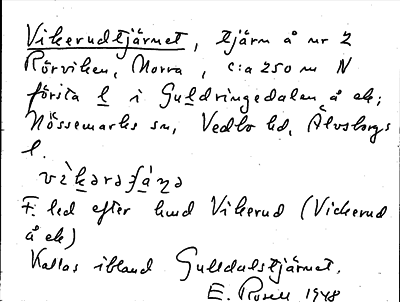 Vikerudtjärnet, tjärn å nr 2
Rörviken, Norra, c:a 250 m N
första l i Guldringedalen å ek;
Nössemarks sn, Vedbo hd, Älvsborgs
l.
F. led efter hmd Vikerud (Vickerud
å ek)
Kallas ibland Gulldalstjärnet.
E. Rosell 1948